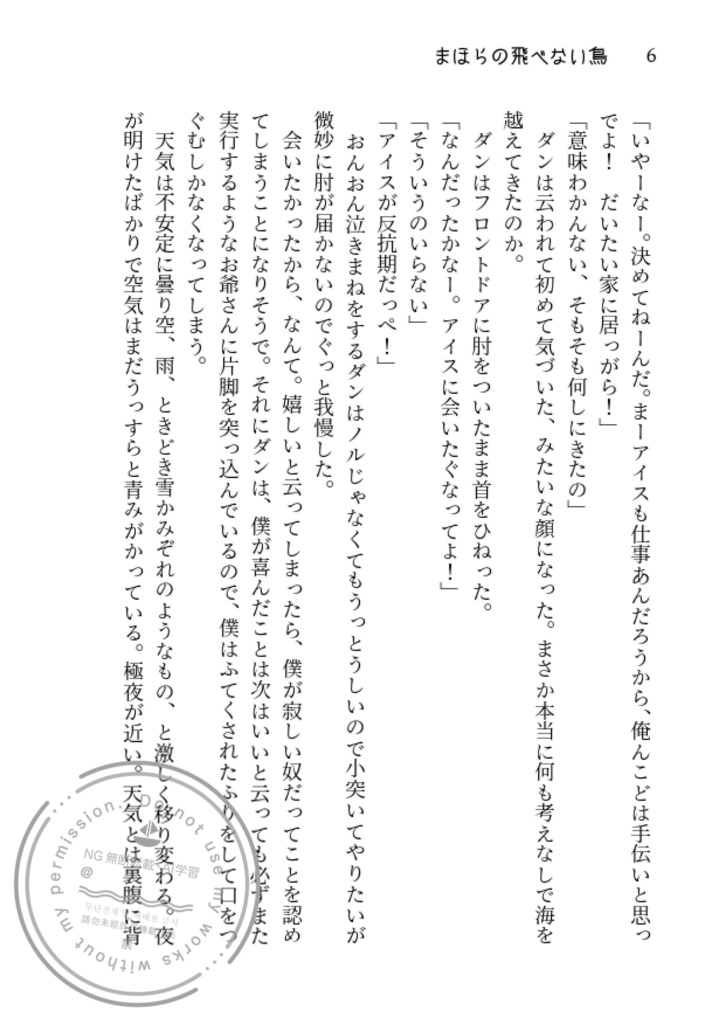 まほらの飛べない鳥
6
「いやーなー。決めてねーんだ。まーアイスも仕事あんだろうから、俺んこどは手伝いと思っ
でよ！　だいたい家に居っがら！」
「意味わかんない、そもそも何しにきたの」
ダンは云われて初めて気づいた、みたいな顔になった。まさか本当に何も考えなしで海を
越えてきたのか。
ダンはフロントドアに肘をついたまま首をひねった。
「なんだったかなー。アイスに会いたぐなってよ！」
「そういうのいらない」
「アイスが反抗期だっぺ！」
おんおん泣きまねをするダンはノルじゃなくてもうっとうしいので小突いてやりたいが
微妙に肘が届かないのでぐっと我慢した。
会いたかったから、なんて。嬉しいと云ってしまったら、僕が寂しい奴だってことを認め
てしまうことになりそうで。それにダンは、僕が喜んだことは次はいいと云っても必ずまた
実行するようなお爺さんに片脚を突っ込んでいるので、僕はふてくされたふりをして口をつ
ぐむしかなくなってしまう。
天気は不安定に曇り空、雨、ときどき雪かみぞれのようなもの、と激しく移り変わる。夜
が明けたばかりで空気はまだうっすらと青みがかっている。極夜が近い。天気とは裏腹に背
Do not use my works without my permission.
NG 無断転載・AI学習
@